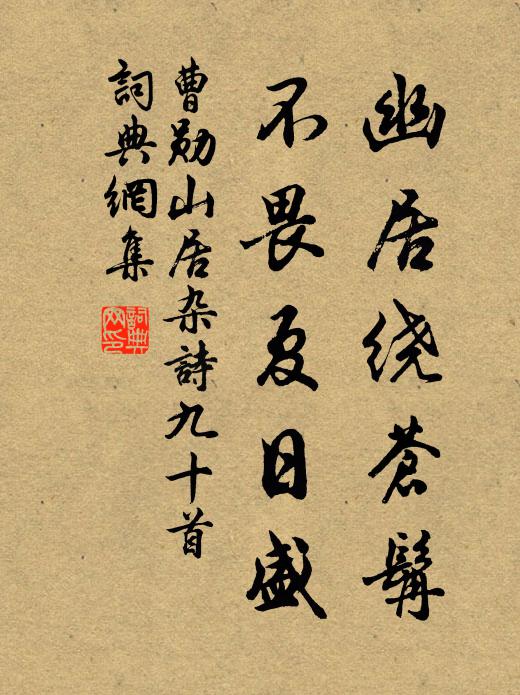 幽居绕蒼髯
不畏夏日盛
曹勛山居杂詩九十首
詞典網集
詞典网印